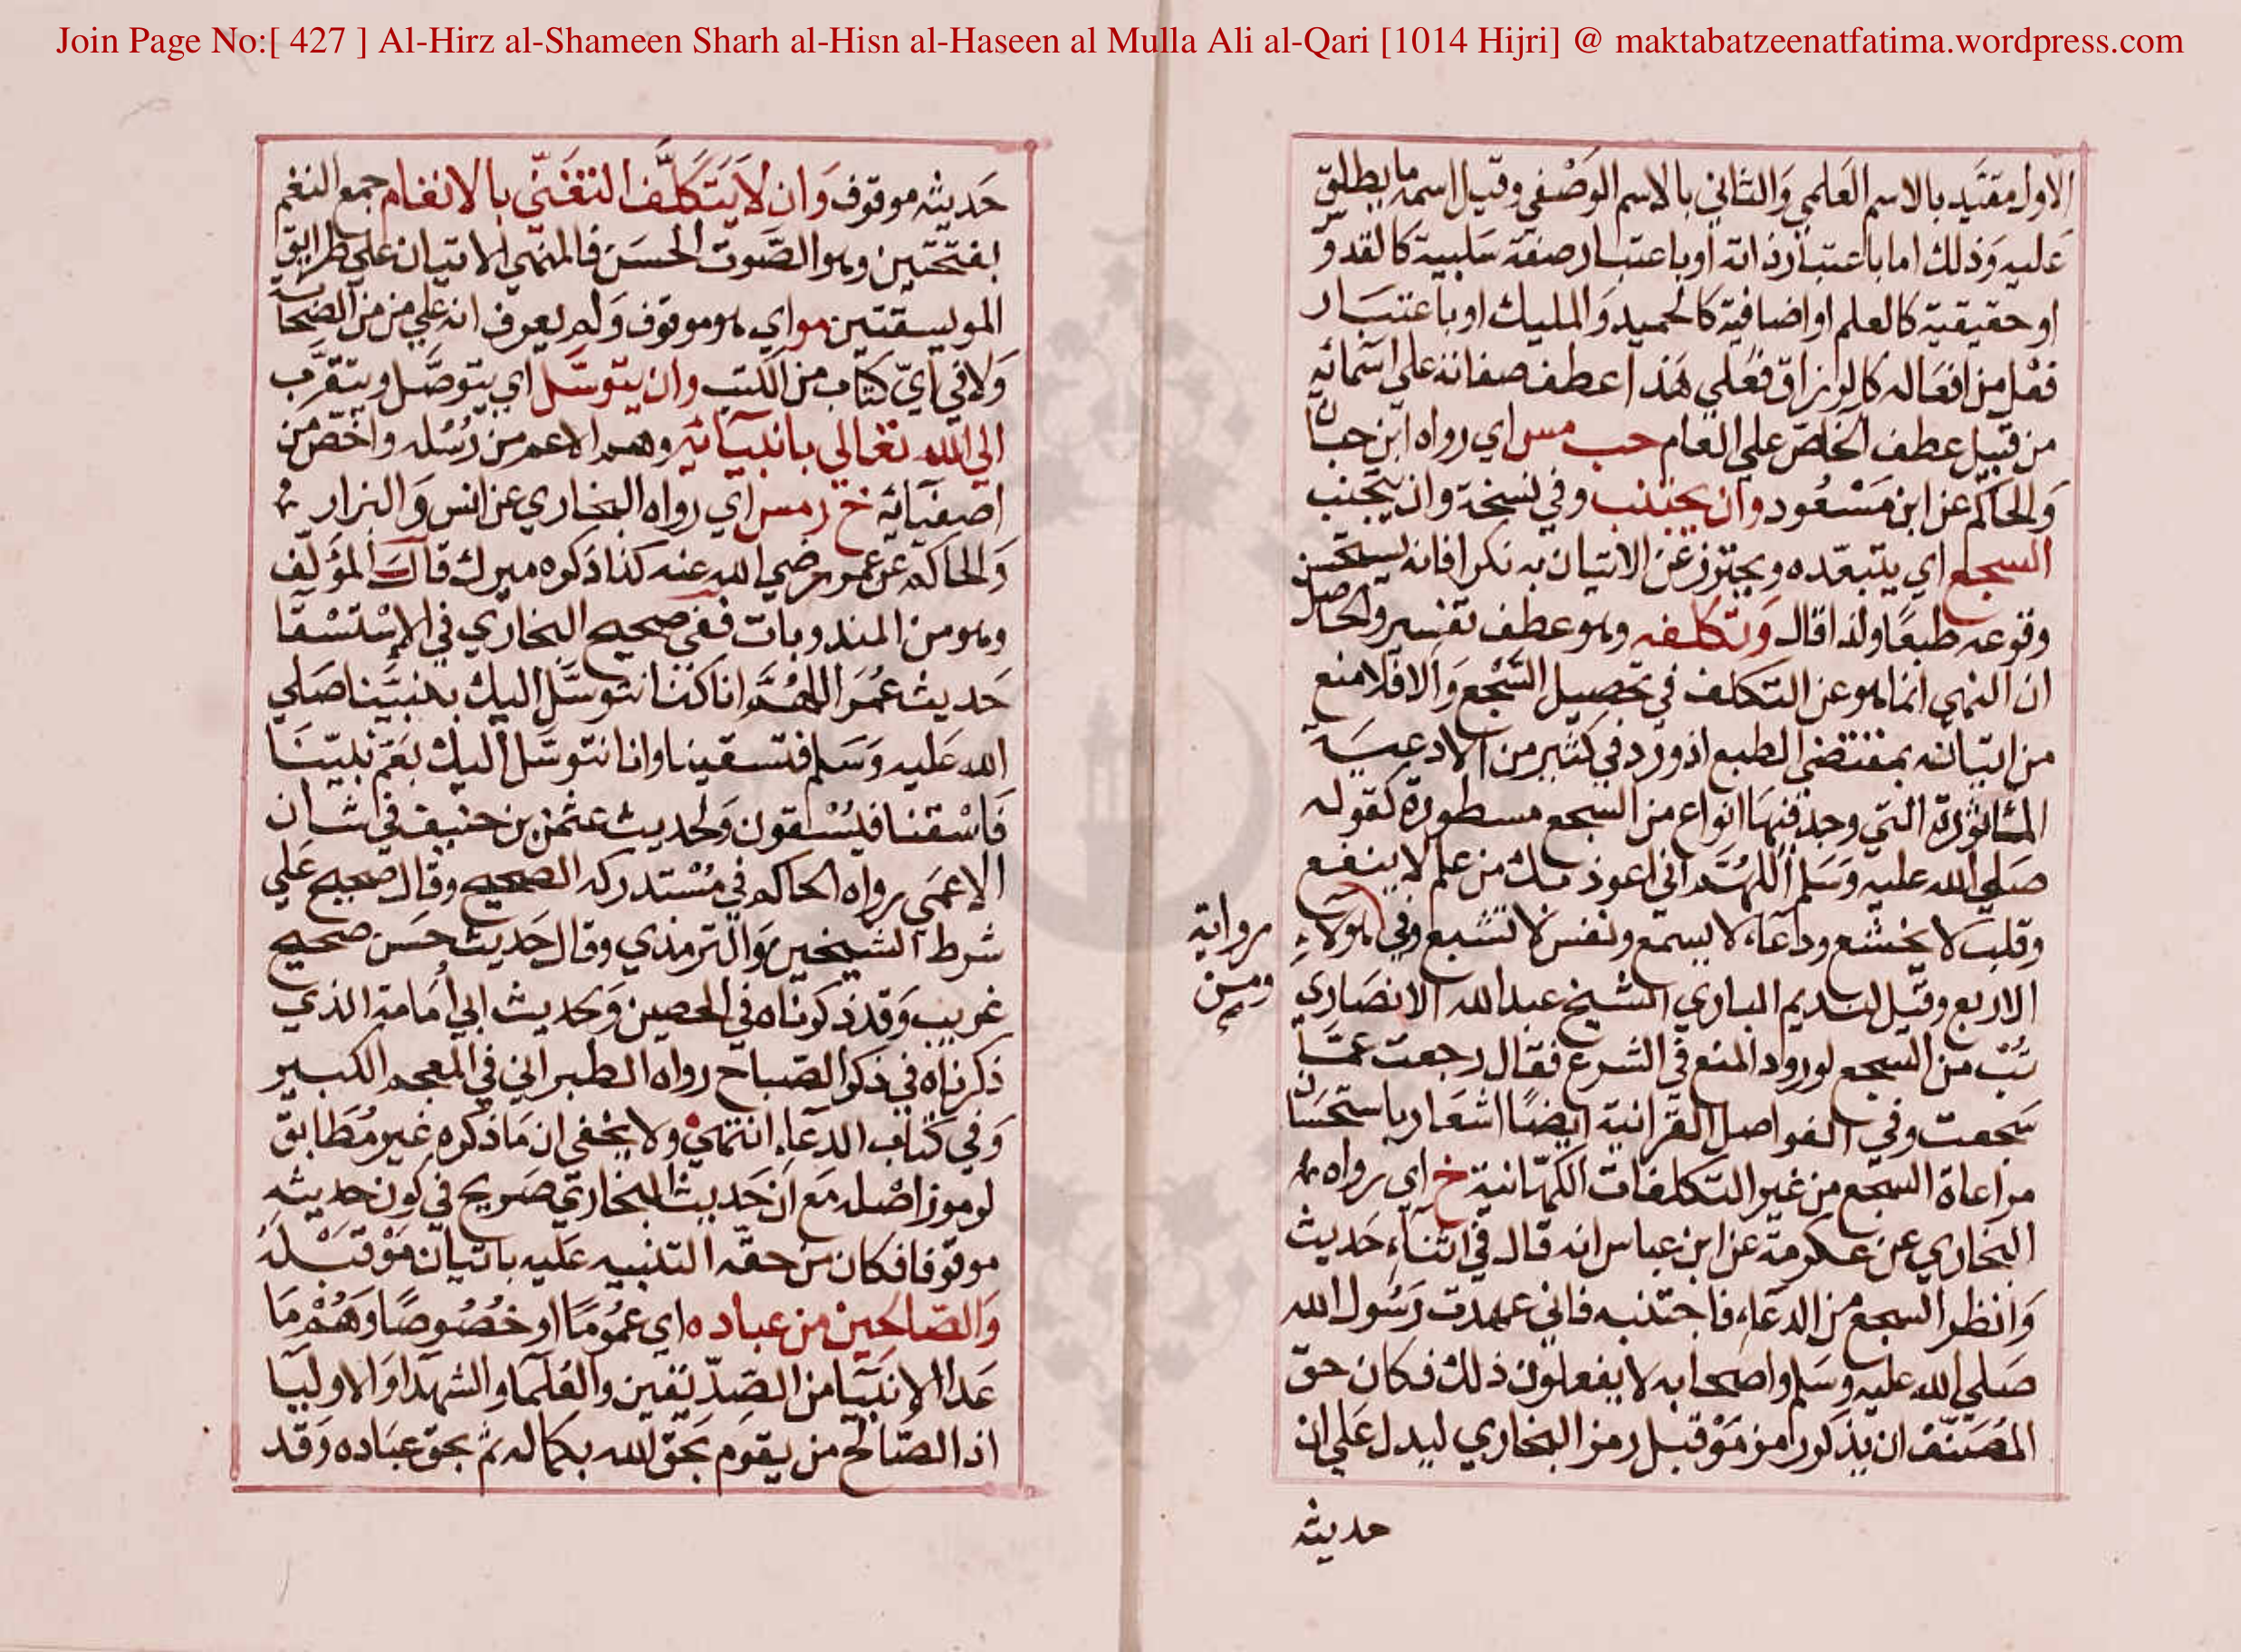 Join Page No:[ 427 ] Al-Hirz al-Shameen Sharh al-Hisn al-Haseen al Mulla Ali al-Qari [1014 Hijri] @ maktabatzeenatfatima.wordpress.com
الاول مقيّد بالاسم العَلمي وَالثاني بالاسم الوَصْفي وقيل اسمه ما يطلق
عَليه وَذلك اما باعتبار ذاته او باعتبار صفة سَلبية كالقدوّ
او حقيقية كالعلم او اضافية كالحميد وَالمليك او باعتبَار
فعْل من افعَاله كالرزاق فعَلي هَذا عطف صفاته علي اسَمائه
من قبيل عطف الخاصّ علي العَام حب مس اي رواه ابن حبان
وَالحاكم عن ابن مَسْعُود وان يجتنب وفي نسخة وان يتجنب
السجع اي يتبعّده ويحترز عَن الاتيان به نكرا فانه يستحسن
وقوعه طبعًا ولذا قال وَتكلفه وهو عطف تفسير والحاصل
ان النهي انما هو عن التكلف في تحصيل السَّجْع وَالا فلا منع
من اتيانه بمقتضي الطبع اذ ورد في كثير من الادعيَة
المأثورة التي وجد فيهَا انواع من السجع مسطورة كقوله
صَلي الله عليه وَسَلم اللهُمَّ اني اعوذ بك من علم لا ينفع
وقلب لا يخشع ودعَاء لا يسمع ونفس لا تشبع وفي هؤلاءِ
الاربع وقيل لنديم الباري الشيخ عبد الله الانصَاري
رواية
ومن
تُبْ من السجع لورود المنع في الشرع فقال رجعت عمّا
سَجعت وفي الفواصل القرانية ايضًا اشعَار باستحسَان
مراعاة السجع من غير التكلفات الكهّانية خ اي رواه
البخاري عن عكرمة عن ابن عباس انه قال في اثنآء حَديث
وَانظر السجع من الدعَاء فاجتنبه فاني عهدت رَسُول الله
صَلي الله عليه وسَلم واصحابه لا يفعلون ذلك فكان حق
المُصَنّف ان يذكر رامز مَوْ قبل رمز البخاري ليدل عَلي ان
حديثه
حَديثه موقوف وَان لاَ يَتَكَلَّف التَغَنّي بالانغام جمع النغم
بفتحتين وهو الصَّوت الحسَن فالمنهي الاتيان علي طرايق
الموسيقتين مو اي هو موقوف وَلم يعرف انه علي من من الصَّحابة
وَلا في ايّ كتاب من الكتب وان يتوسَّل اي يتوصَّل ويتقرَّب
الي الله تعالي بانبيآئه وهم الاعم من رُسُله واخصّ من
اصفيائه خ ر مس اي رواه البخاري عن انس وَالبزار
وَالحاكم عن عمر رضي الله عنه كذا ذكره ميرك قال المؤلّف
وهو من المندوبات ففي صحيح البخاري في الإسْتسْقا
حَديث عُمَر اللهُمَّ انا كنا نتوسَّل اليك بنبيّنا صَلي
الله عَليه وَسَلم فتسقينا وانا نتوسَّل اليك بعَمّ نبيّنَا
فَاسْقنا فيُسْقون وَلحديث عثمن بن حنيف في شان
الاعمَي رواه الحاكم في مُسْتدركه الصحيح وقال صحيح عَلي
شرط الشيخين وَالترمذي وقال حَديث حَسَن صحيح
غريب وَقد ذكرناه في الحصين وَلحديث ابي اُمَامة الذي
ذكرناه في ذكر الصّباح رواه الطبراني في المعجم الكبير
وَفي كتاب الدعَاء انتهي ولا يخفي ان مَا ذكره غير مُطَابق
لرموز اصْله مَع انّ حَديث البخاري صَريح في كون حديثه
موقوفا فكان من حقّه التنبيه عَليه باتيان مَوْ قبْلهُ
وَالصّالحِينْ من عباده اي عمُومًا او خصُوصًا وَهُمْ مَا
عَدا الانبيَا من الصّدّيقين والعُلَمَا والشهدَا وَالاوليَا
اذ الصَّالح من يقوم بحَق الله بكماله ثم بحق عبَاده وَقد